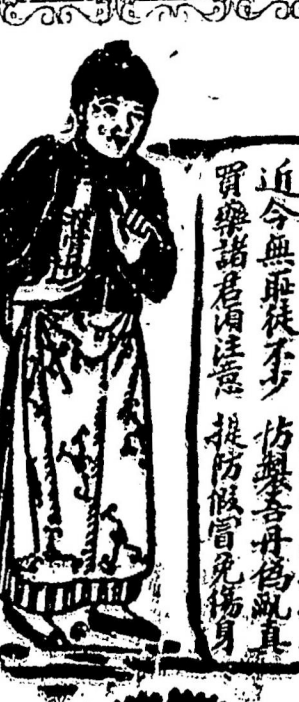 近今無恥徒不少 仿製吾丹偽亂真
買藥諸君須注意 提防假冒免傷身